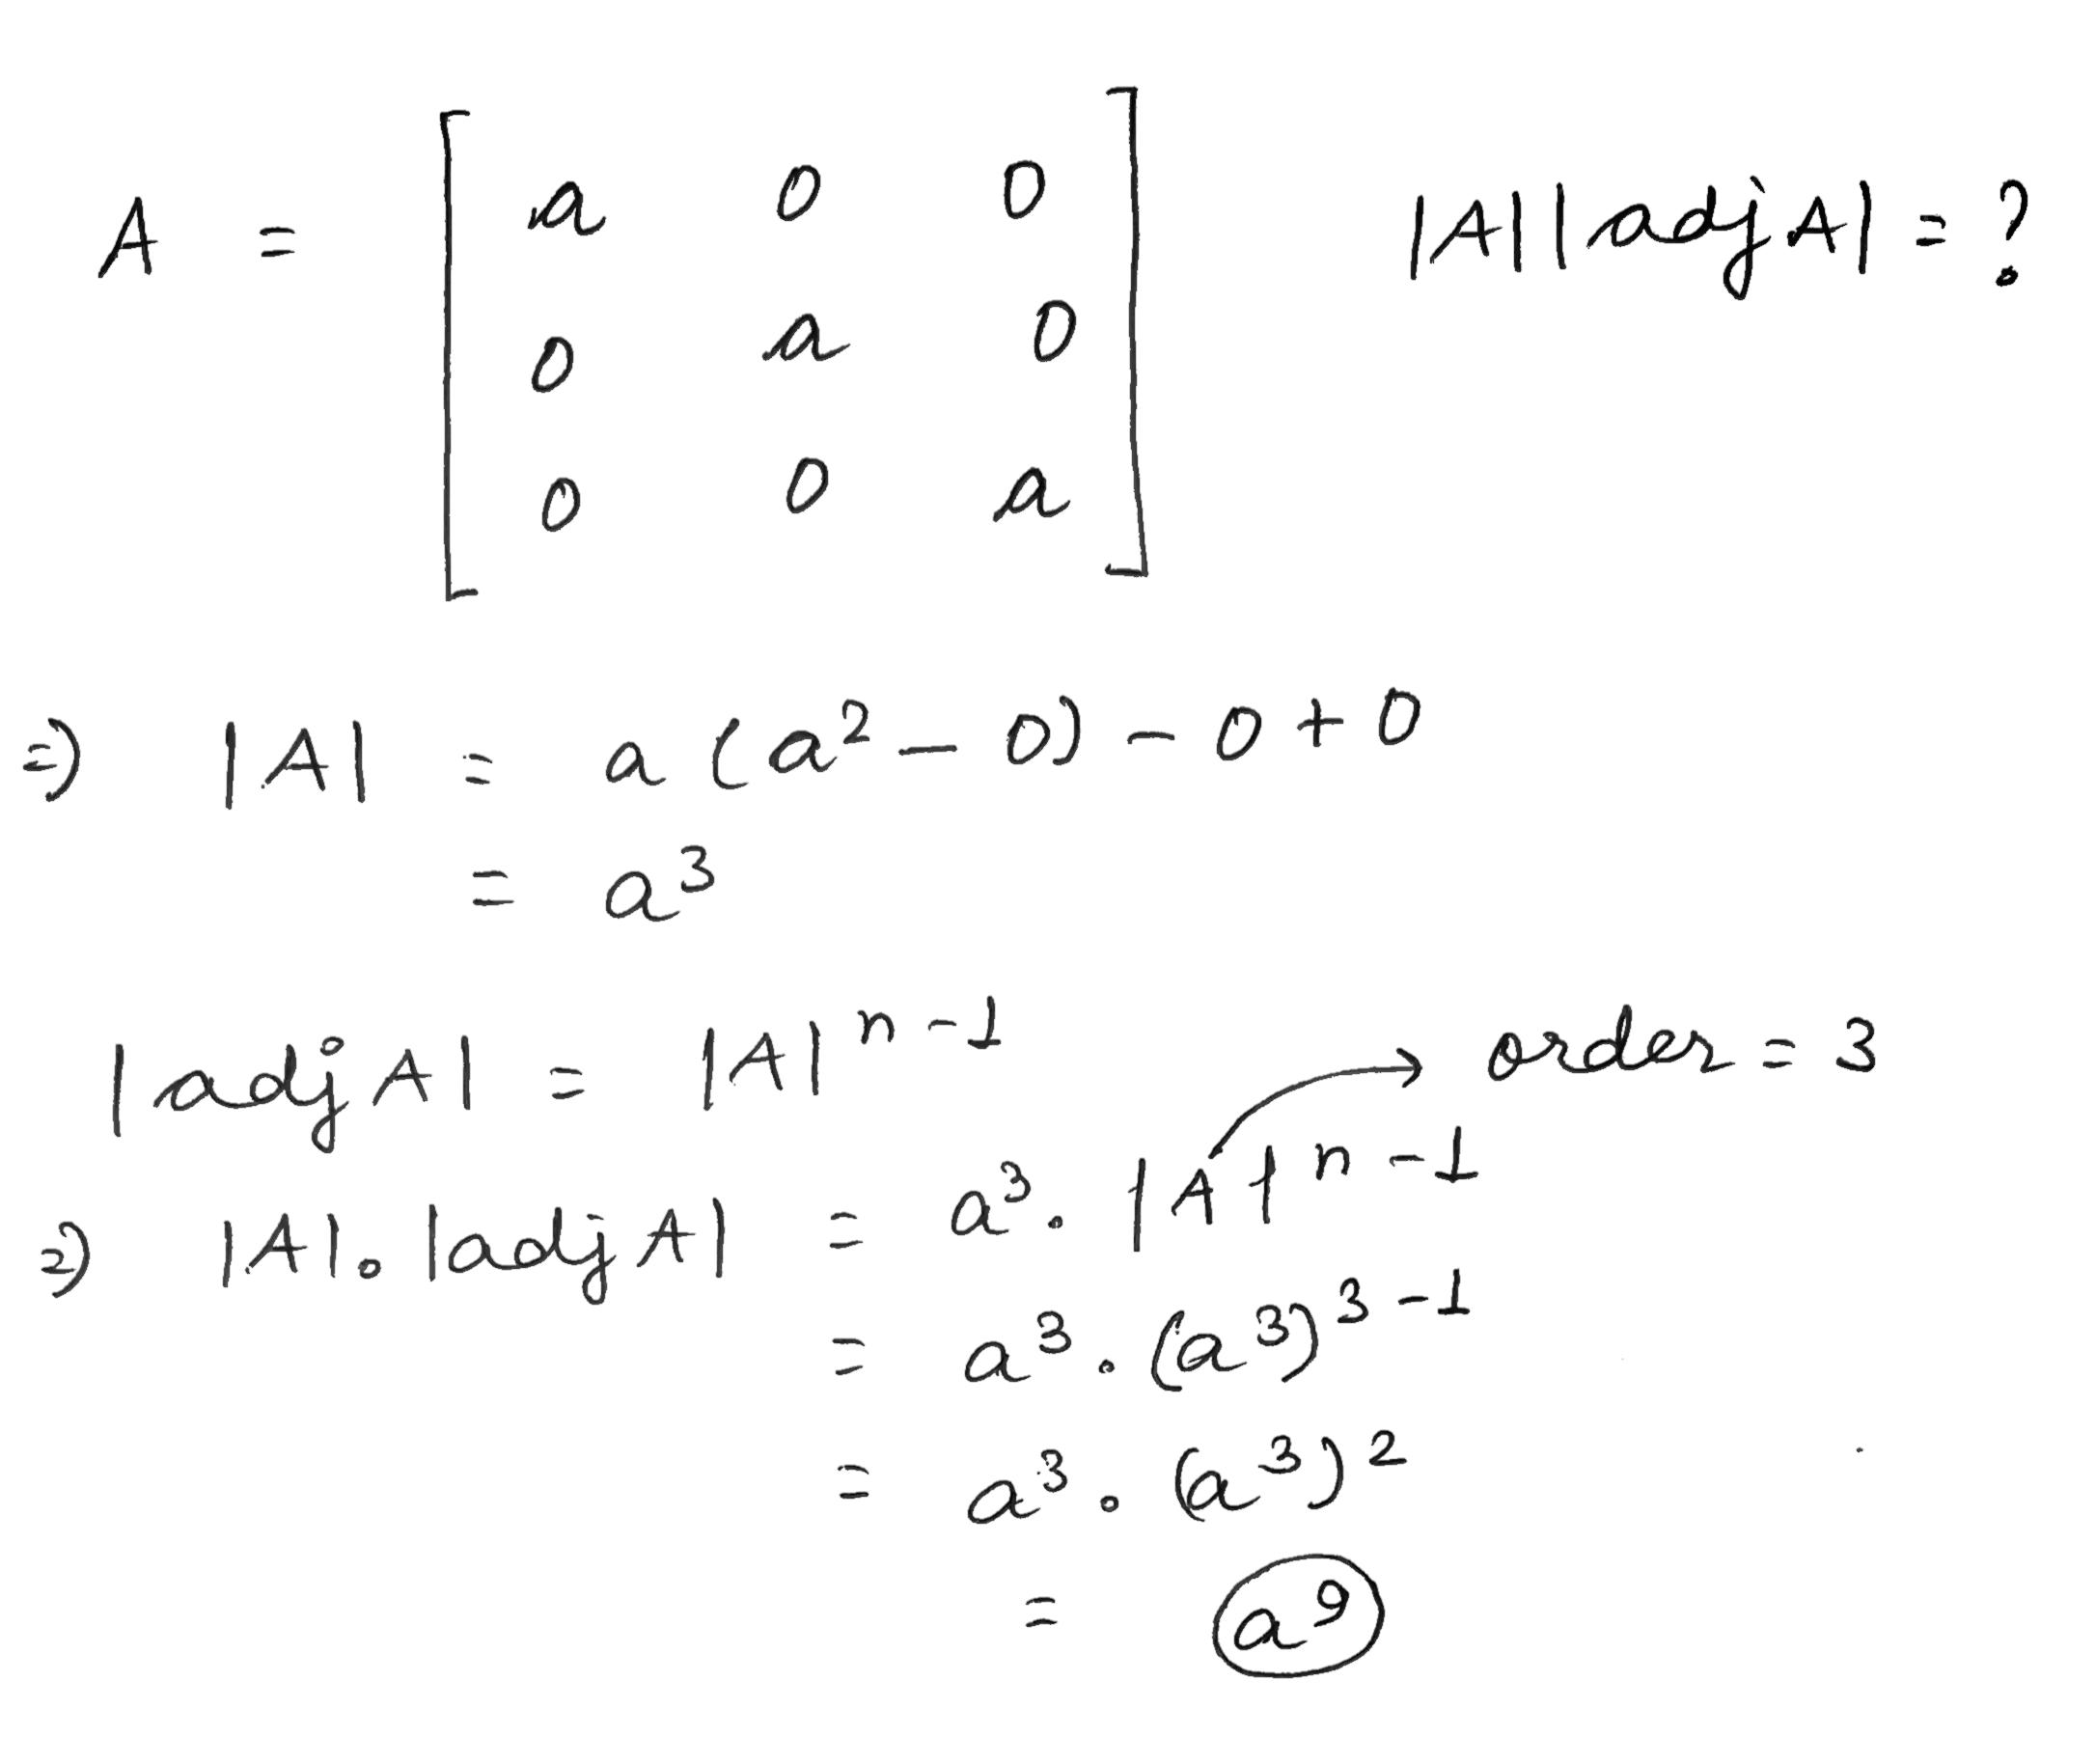 a 0 0
A = 0 a 0 |A||adj A| = ?
0 0 a
⇒ |A| = a (a² – 0) – 0 + 0
= a³
|adj A| = |A|ⁿ⁻¹ → order = 3
⇒ |A|. |adj A| = a³. |A|ⁿ⁻¹
= a³. (a³)³⁻¹
= a³. (a³)²
= a⁹